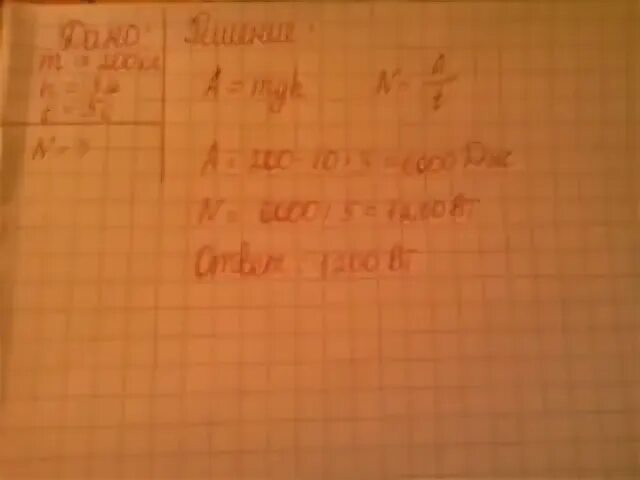 Дано:
m = 200кг
h = 3м
t = 5с
N - ?
Решение:
A = mgh N = A/t
A = 200 · 10 · 3 = 6000 Дж
N = 6000 / 5 = 1200 Вт
Ответ: 1200 Вт